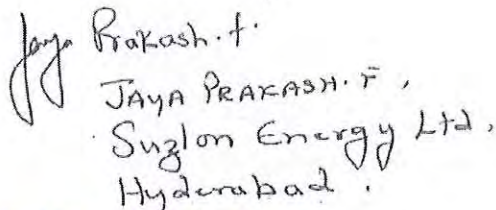 Jaya Prakash.f.
JAYA PRAKASH.F,
Suzlon Energy Ltd,
Hyderabad.